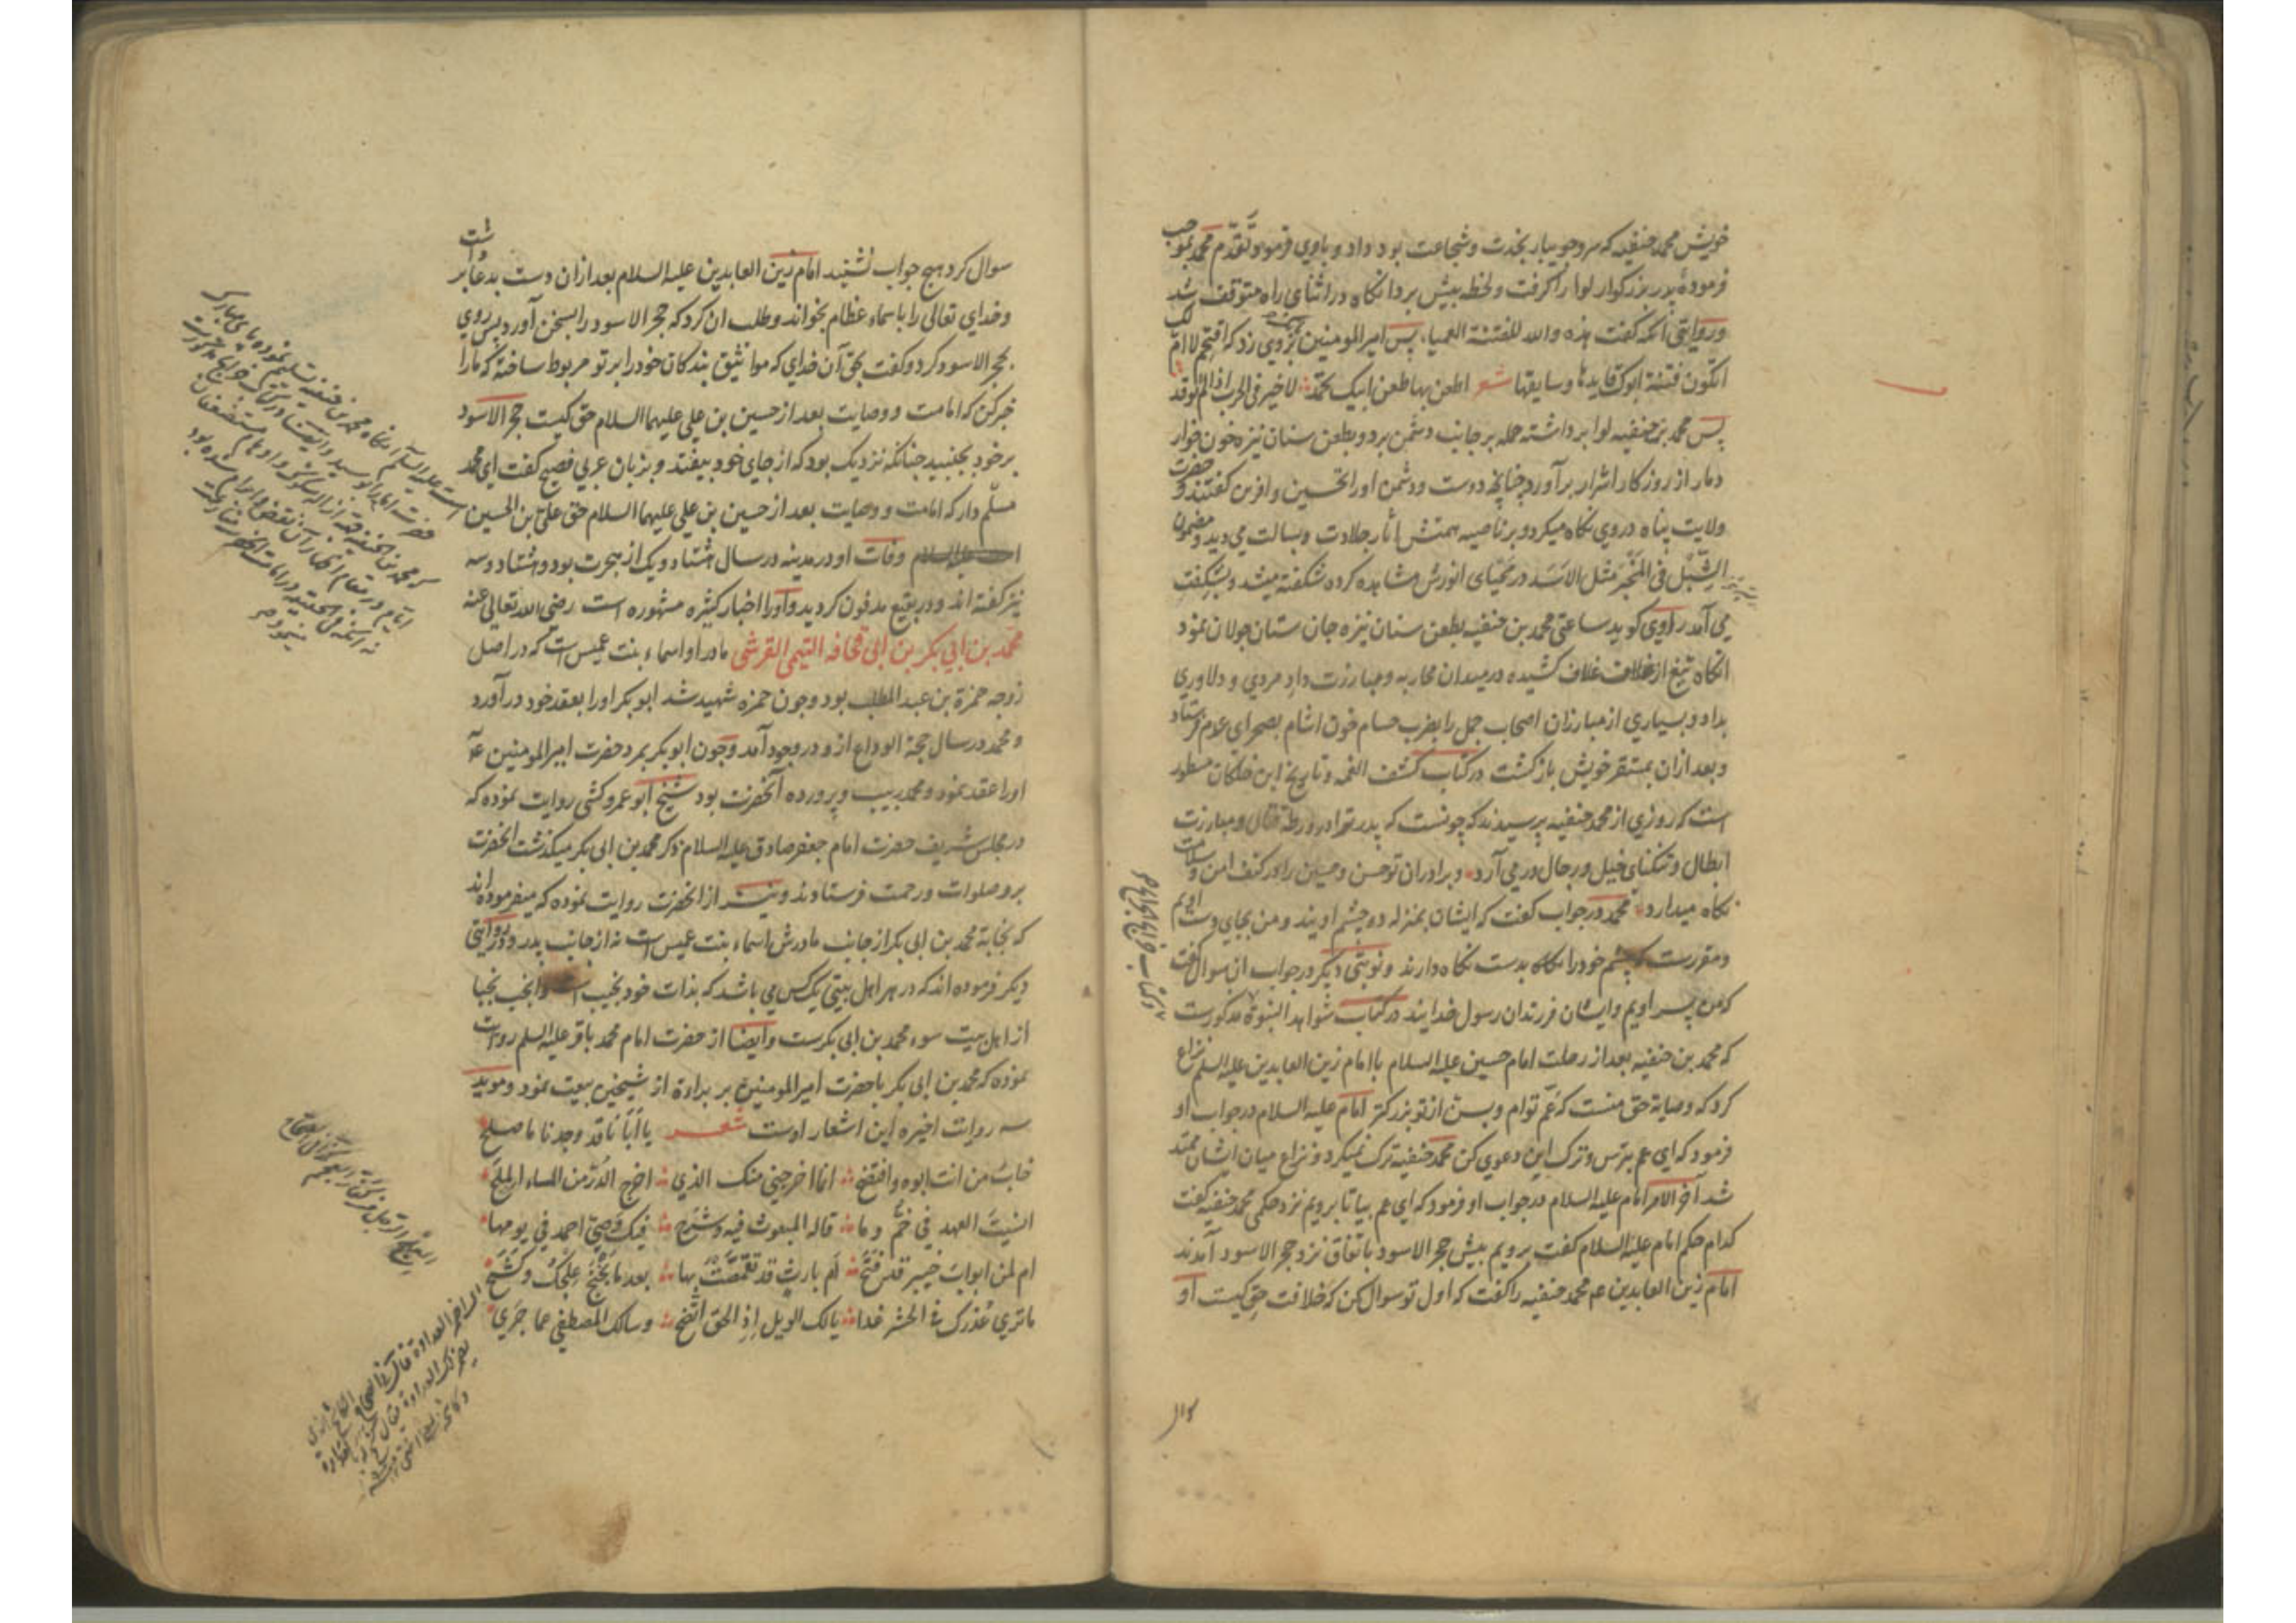 خویش محمد حنفیه که سرو جویبار نجدت و شجاعت بود داد و باوی فرمود تقدم محمد بموجب
فرمودهٔ پدر بزرکوار لوا را کرفت و لحظه پیش برد انکاه در اثنای راه متوقف شد
و روایتی انکه گفت هذه والله للفتنة العمیاء پس امیر المومنین بروی زد که اقتحم لا ام لک
اتکون فتنة ابوک قایدها و سایقها شعر اطعن بها طعن ابیک تحمد لا خیر فی الحرب اذا لم توقد
پس محمد بن حنفیه لوا برداشته حمله بر جانب دشمن برد و بطعن سنان نیزه خون خوار
دمار از روزکار اشرار برآورد چنانچه دوست و دشمن او را تحسین و افرین کفتند و حضرت
ولایت پناه در وی نکاه میکرد و بر ناصیه همتش آثار جلادت و بسالت می دید و مضمون
الشبل فی المخبر مثل الاسد در محیای انورش مشاهده کرده شکفته میشد و بشکفت
می آمد راوی کوید ساعتی محمد بن حنفیه بطعن سنان نیزه جان ستان جولان نمود
انکاه تیغ از غلاف خلاف کشیده در میدان محاربه و مبارزت داد مردی و دلاوری
بداد و بسیاری از مبارزان اصحاب جمل را بضرب حسام خون اشام بصحرای عدم فرستاد
و بعد ازان بمستقر خویش باز کشت در کتاب کشف الغمه و تاریخ ابن خلکان مسطور
است که روزی از محمد حنفیه پرسیدند که چونست که پدر تو ترا در ورطه قتال و مبارزت
ابطال و تنکنای خیل و رجال در می آرد و برادران تو حسن و حسین را در کنف امن و سلامت
نکاه میدارد محمد در جواب کفت که ایشان بمنزله دو چشم اویند و من بجای دست اویم
و مقررست که چشم خود را بدست نکاه دارند و نوبتی دیکر در جواب ان سوال کفت
که من پسر اویم و ایشان فرزندان رسول خدایند در کتاب شواهد النبوة مذکورست
که محمد بن حنفیه بعد از رحلت امام حسین علیه السلام با امام زین العابدین علیه السلم نزاع
کرد که وصایة حق منست که عم توام و بسن از تو بزرکتر امام علیه السلام در جواب او
فرمود که ای عم بترس و ترک این دعوی کن محمد حنفیه ترک نمیکرد و نزاع میان ایشان ممتد
شد آخر الامر امام علیه السلام در جواب او فرمود که ای عم بیا تا برویم نزد حکمی محمد حنفیه کفت
کدام حکم امام علیه السلام کفت برویم پیش حجر الاسود باتفاق نزد حجر الاسود آمدند
امام زین العابدین عم محمد حنفیه را کفت که اول تو سوال کن که خلافت حق کیست او
سوال
سوال کرد هیچ جواب نشنید امام زین العابدین علیه السلام بعد ازان دست بدعا برداشت
و خدای تعالی را باسماء عظام بخواند و طلب ان کرد که حجر الاسود را بسخن آورد پس روی
بحجر الاسود کرد و کفت بحق آن خدای که مواثیق بندکان خود را بر تو مربوط ساخته که ما را
خبر کن که امامت و وصایت بعد از حسین بن علی علیهما السلام حق کیست حجر الاسود
بر خود بجنبید چنانکه نزدیک بود که از جای خود بیفتد و بزبان عربی فصیح کفت ای محمد
مسلم دار که امامت و وصایت بعد از حسین بن علی علیهما السلام حق علی بن الحسین
است علیه السلام وفات او در مدینه در سال هشتاد و یک از هجرت بود و هشتاد و سه
نیز کفته اند و در بقیع مدفون کردید و او را اخبار کثیره مشهوره است رضی الله تعالی عنه
محمد بن ابی بکر بن ابی قحافه التیمی القرشی مادر او اسماء بنت عمیس است که در اصل
زوجه حمزة بن عبد المطلب بود و چون حمزه شهید شد ابو بکر او را بعقد خود در آورد
و محمد در سال حجة الوداع از و در وجود آمد و چون ابو بکر بمرد حضرت امیر المومنین
او را عقد نمود و محمد ربیب و پرورده آنحضرت بود شیخ ابو عمرو کشی روایت نموده که
در مجلس شریف حضرت امام جعفر صادق علیه السلام ذکر محمد بن ابی بکر میکذشت انحضرت
برو صلوات و رحمت فرستادند و نیز از انحضرت روایت نموده که میفرموده اند
که نجابة محمد بن ابی بکر از جانب مادرش اسماء بنت عمیس است نه از جانب پدر و در روایتی
دیکر فرموده اند که در هر اهل بیتی یک کس می باشد که بذات خود نجیب است و انجب نجبا
از اهل بیت سوء محمد بن ابی بکرست و ایضا از حضرت امام محمد باقر علیه السلم روایت
نموده که محمد بن ابی بکر با حضرت امیر المومنین بر براءة از شیخین بیعت نمود و موید
سه روات اخیره این اشعار اوست شعر یا ابانا قد وجدنا ما صلح
خاب من انت ابوه و افتضح انما اخرجنی منک الذی اخرج الدر من الماء الملح
انسیت العهد فی خم و ما قاله المبعوث فیه و شرح فیک وصی احمد فی یومها
ام لمن ابواب خیبر قد فتح ام بارث قد تقمصت بها بعد ما یحتج علجک و کشح
ما تری عذرک فی الحشر غدا یا لک الویل اذ الحق اتضح و سالک المصطفی عما جری